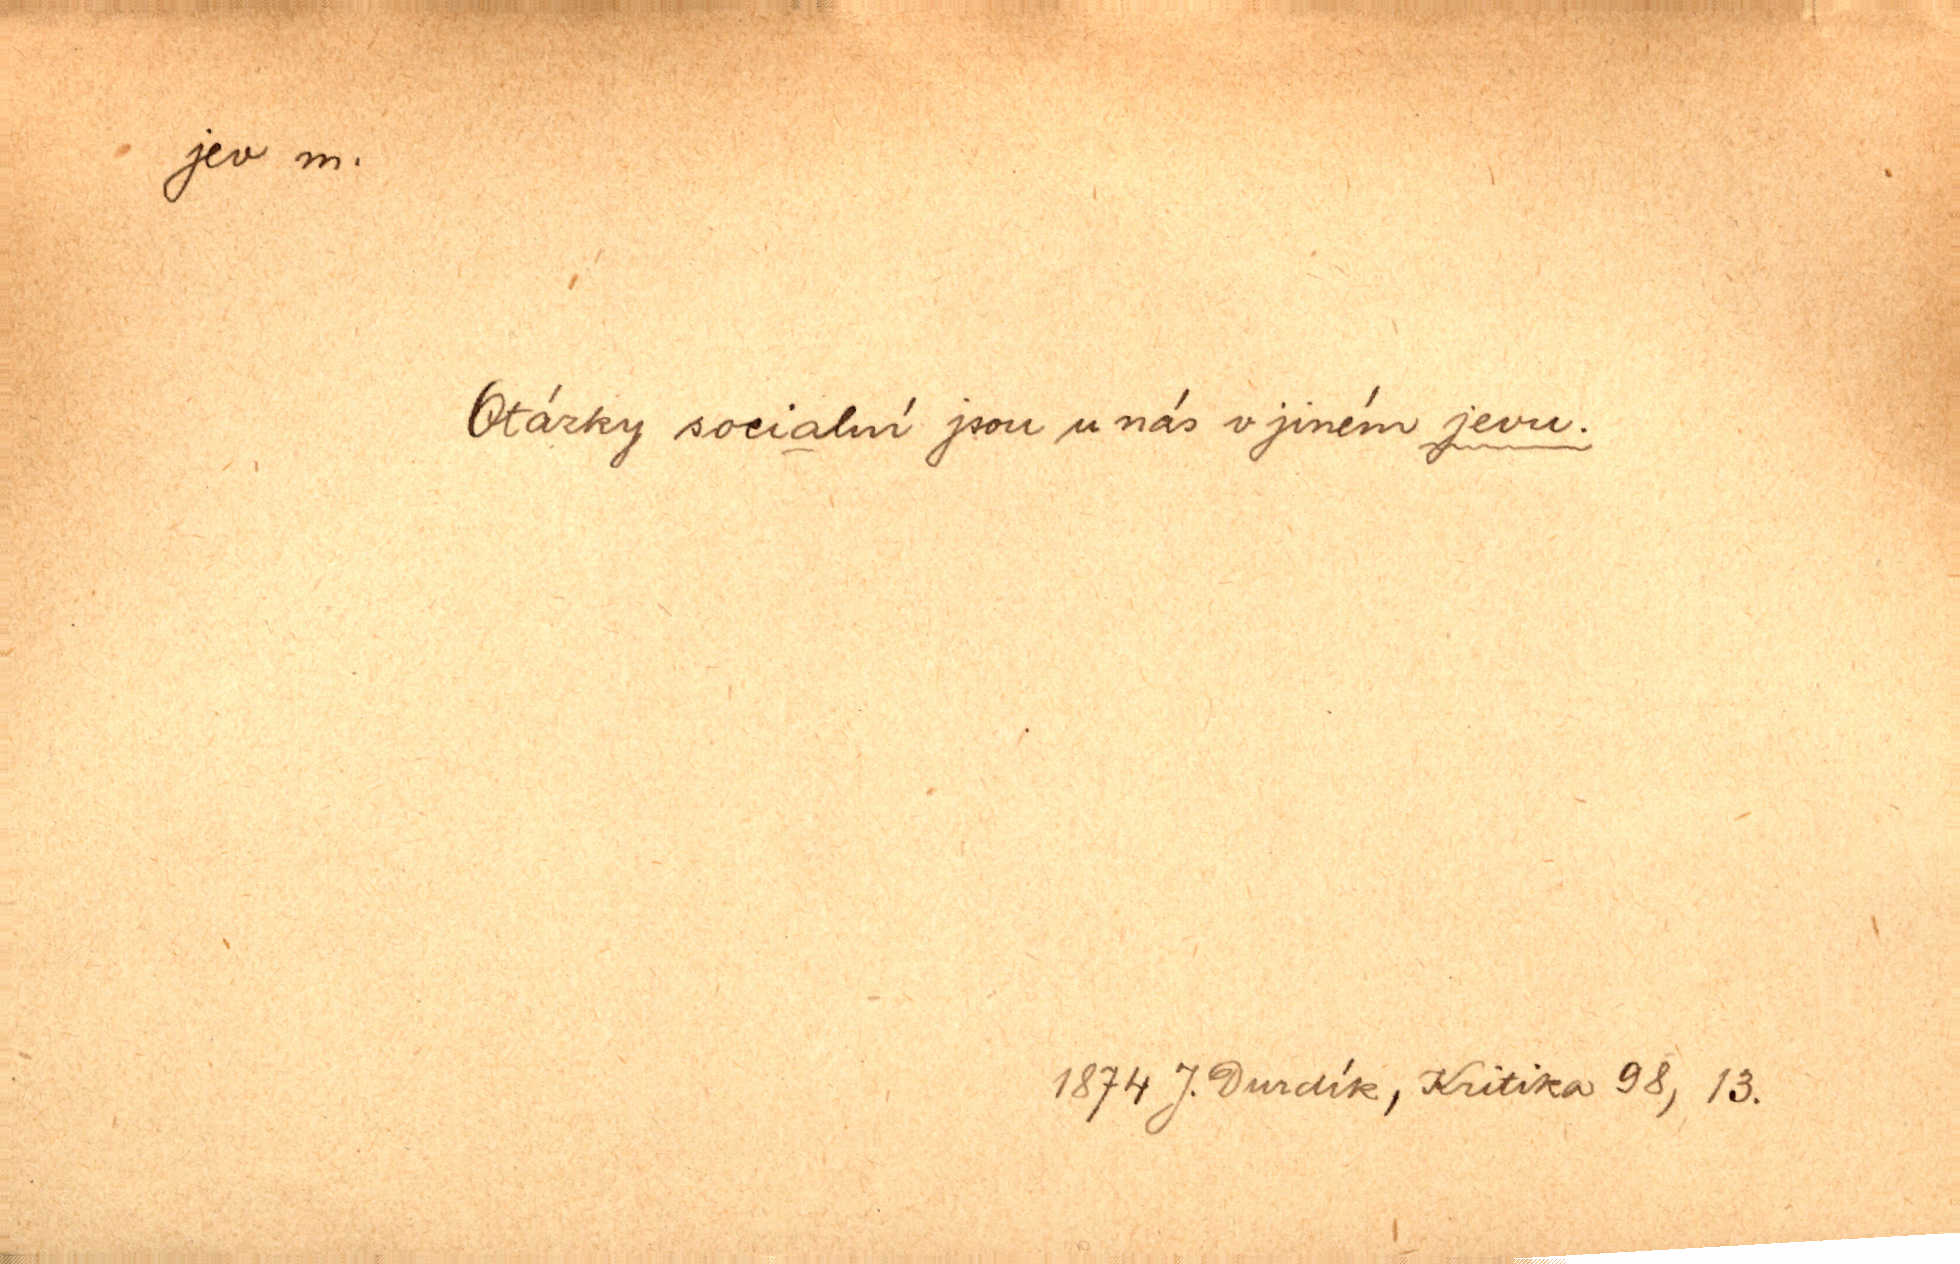 jev m.
Otázky socialní jsou u nás v jiném jevu.
1874 J. Durdík, Kritika 98, 13.